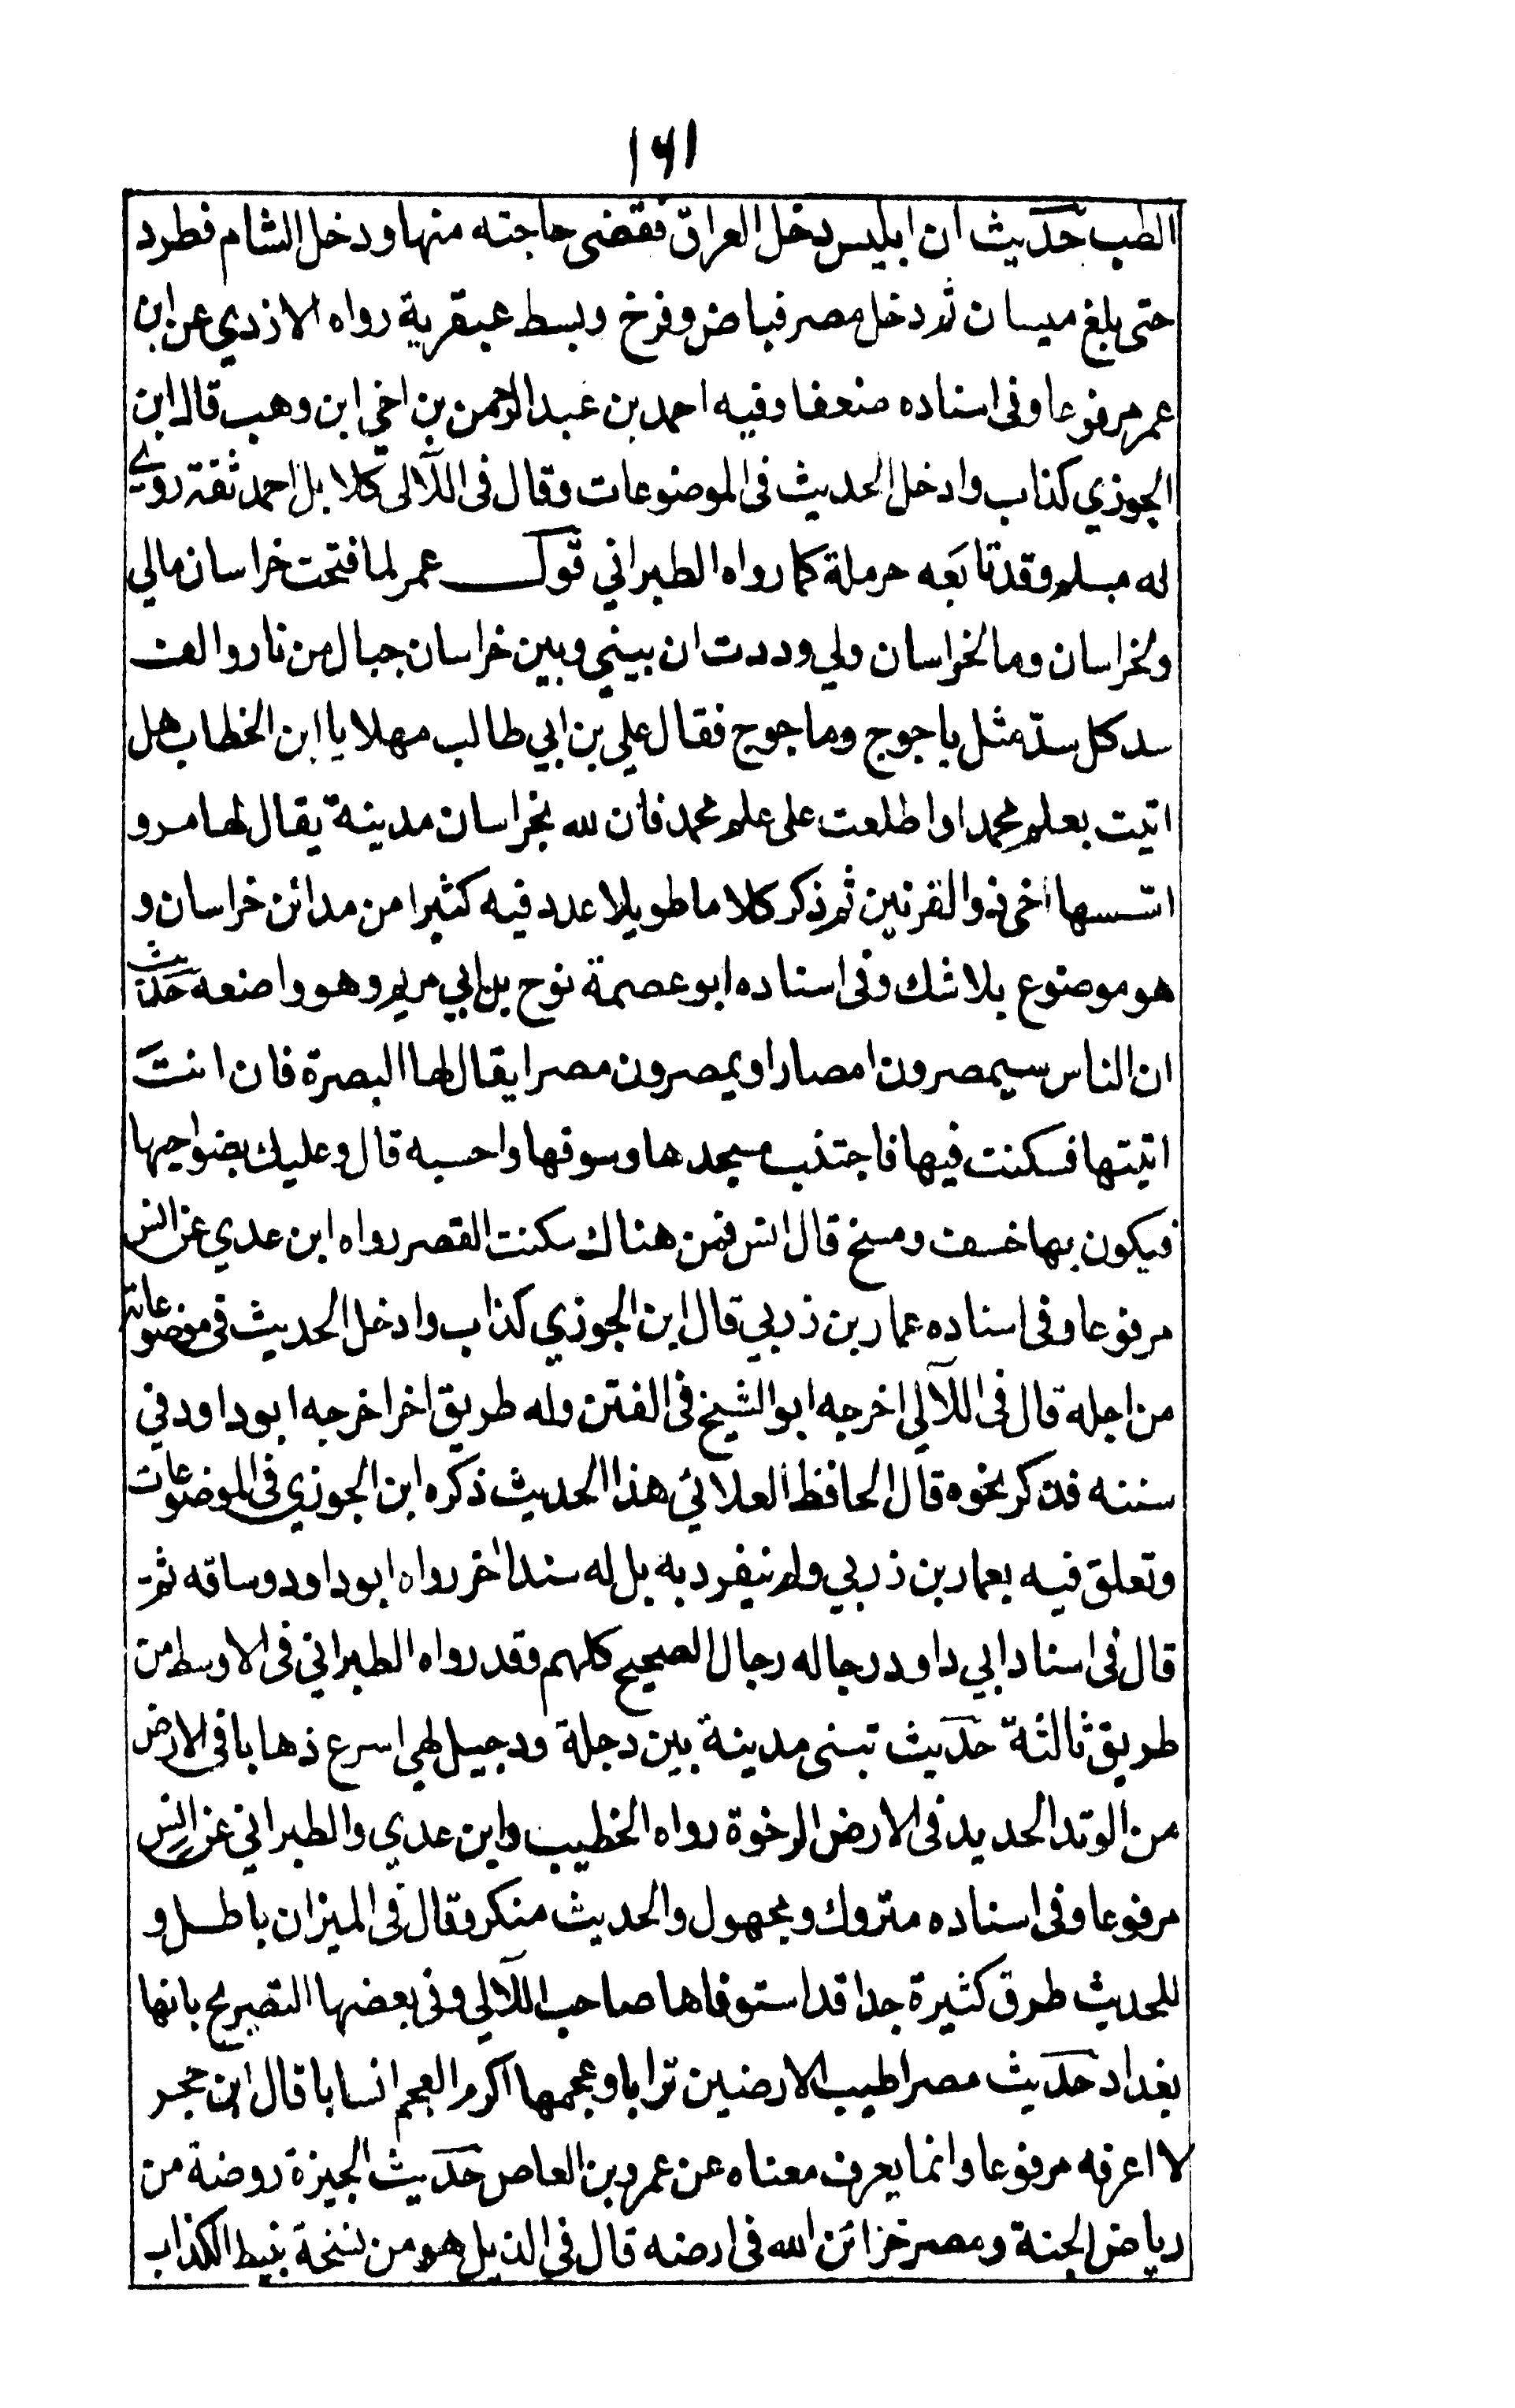 ١٦١
الطب حديث ان ابليس دخل العراق فقضى حاجته منها ودخل الشام فطرد
حتى بلغ ميسان ثم دخل مصر فباض وفرخ وبسط عبقرية رواه الازدي عن ابن
عمر مرفوعا وفى اسناده ضعفا وفيه احمد بن عبد الرحمن بن اخي ابن وهب قال ابن
الجوزي كذاب وادخل الحديث فى الموضوعات وقال فى اللآلى كلا بل احمد ثقة روى
له مسلم وقد تابعه حرملة كما رواه الطبراني قول عمر لما فتحت خراسان مالي
ولخراسان وما لخراسان ولي وددت ان بيني وبين خراسان جبال من نار والف
سد كل سد مثل ياجوج وماجوج فقال علي بن ابي طالب مهلا يا ابن الخطاب هل
اتيت بعلم محمد او اطلعت على علم محمد فان لله بخراسان مدينة يقال لها مرو
اسسها اخى ذو القرنين ثم ذكر كلاما طويلا عدد فيه كثيرا من مدائن خراسان و
هو موضوع بلا شك وفى اسناده ابو عصمة نوح بن ابي مريم وهو واضعه حديث
ان الناس سيمصرون امصارا ويمصرون مصرا يقال لها البصرة فان انت
اتيتها فسكنت فيها فاجتنب مسجدها وسوقها واحسبه قال وعليك بضواحيها
فيكون بها خسف ومسخ قال انس فمن هناك سكنت القصر رواه ابن عدي عن انس
مرفوعا وفى اسناده عمار بن زربي قال ابن الجوزي كذاب وادخل الحديث فى موضوعاته
من اجله قال فى اللآلي اخرجه ابو الشيخ فى الفتن وله طريق اخر اخرجه ابو داود في
سننه فذكر نحوه قال الحافظ العلائي هذا الحديث ذكره ابن الجوزي فى الموضوعات
وتعلق فيه بعمار بن زربي ولم ينفرد به بل له سند اخر رواه ابو داود وساقه ثم
قال فى اسناد ابي داود رجاله رجال الصحيح كلهم وقد رواه الطبراني فى الاوسط من
طريق ثالثة حديث تبنى مدينة بين دجلة ودجيل لهي اسرع ذهابا فى الارض
من الوتد الحديد فى الارض الرخوة رواه الخطيب وابن عدي والطبراني عن انس
مرفوعا وفى اسناده متروك ومجهول والحديث منكر وقال فى الميزان باطل و
للحديث طرق كثيرة جدا قد استوفاها صاحب اللآلي وفى بعضها التصريح بانها
بغداد حديث مصر اطيب الارضين ترابا وعجمها اكرم العجم انسابا قال ابن حجر
لا اعرفه مرفوعا وانما يعرف معناه عن عمرو بن العاص حديث الجيزة روضة من
رياض الجنة ومصر خزائن الله فى ارضه قال فى الذيل هو من نسخة نبيط الكذاب